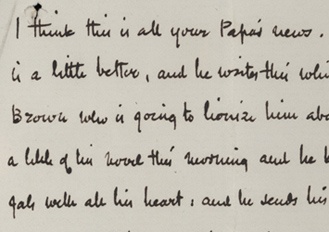 I think this is all your Papa's news.
is a little better, and he writes this whi
Brown who is going to lionize him abo
a little of his novel this morning and he
gals with all his heart: and he sends his